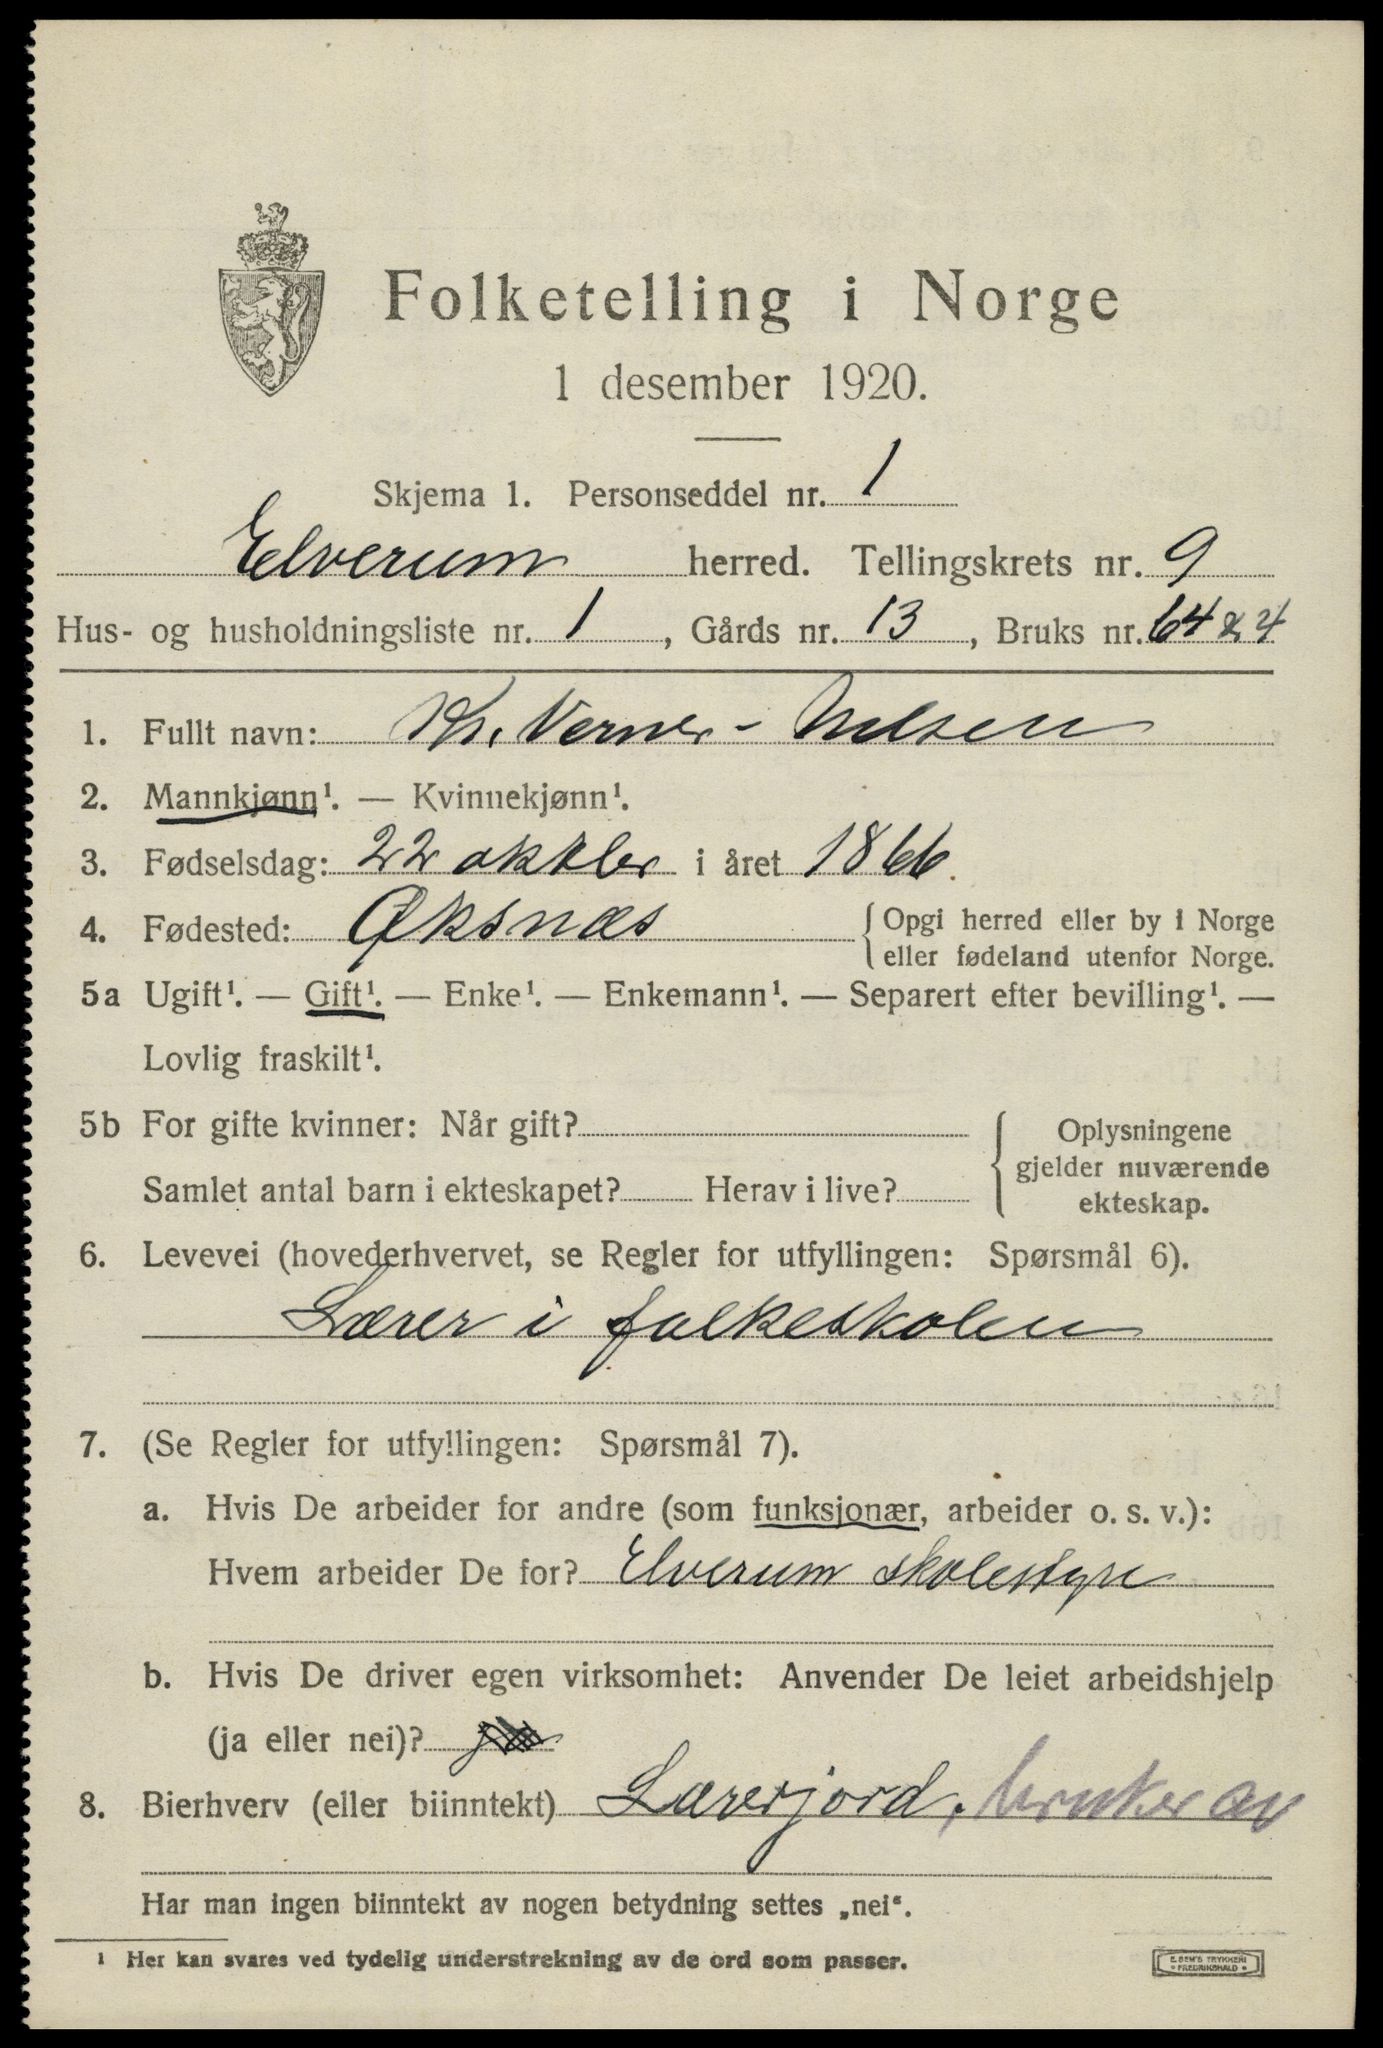 Folketelling i Norge
1 desember 1920.
Skjema 1. Personseddel nr. 1
Elverum herred. Tellingskrets nr. 9
Hus- og husholdningsliste nr. 1, Gårds nr. 13, Bruks nr. 64 & 4
1. Fullt navn: Kr. Verner-Nilsen
2. Mannkjønn¹. — Kvinnekjønn¹.
3. Fødselsdag: 22 oktbr i året 1866.
4. Fødested: Øksnæs { Opgi herred eller by i Norge
eller fødeland utenfor Norge.
5a Ugift¹. — Gift¹. — Enke¹. — Enkemann¹. — Separert efter bevilling¹. —
Lovlig fraskilt¹.
5b For gifte kvinner: Når gift? { Oplysningene
gjelder nuværende
Samlet antal barn i ekteskapet? Herav i live? ekteskap.
6. Levevei (hovederhvervet, se Regler for utfyllingen: Spørsmål 6).
Lærer i folkeskolen
7. (Se Regler for utfyllingen: Spørsmål 7).
a. Hvis De arbeider for andre (som funksjonær, arbeider o. s. v.):
Hvem arbeider De for? Elverum skolestyre
b. Hvis De driver egen virksomhet: Anvender De leiet arbeidshjelp
(ja eller nei)?
8. Bierhverv (eller biinntekt) Lærerjord, bruker av
Har man ingen biinntekt av nogen betydning settes „nei“.
¹ Her kan svares ved tydelig understrekning av de ord som passer.
E. SEM'S TRYKKERI
• FREDRIKSHALD •